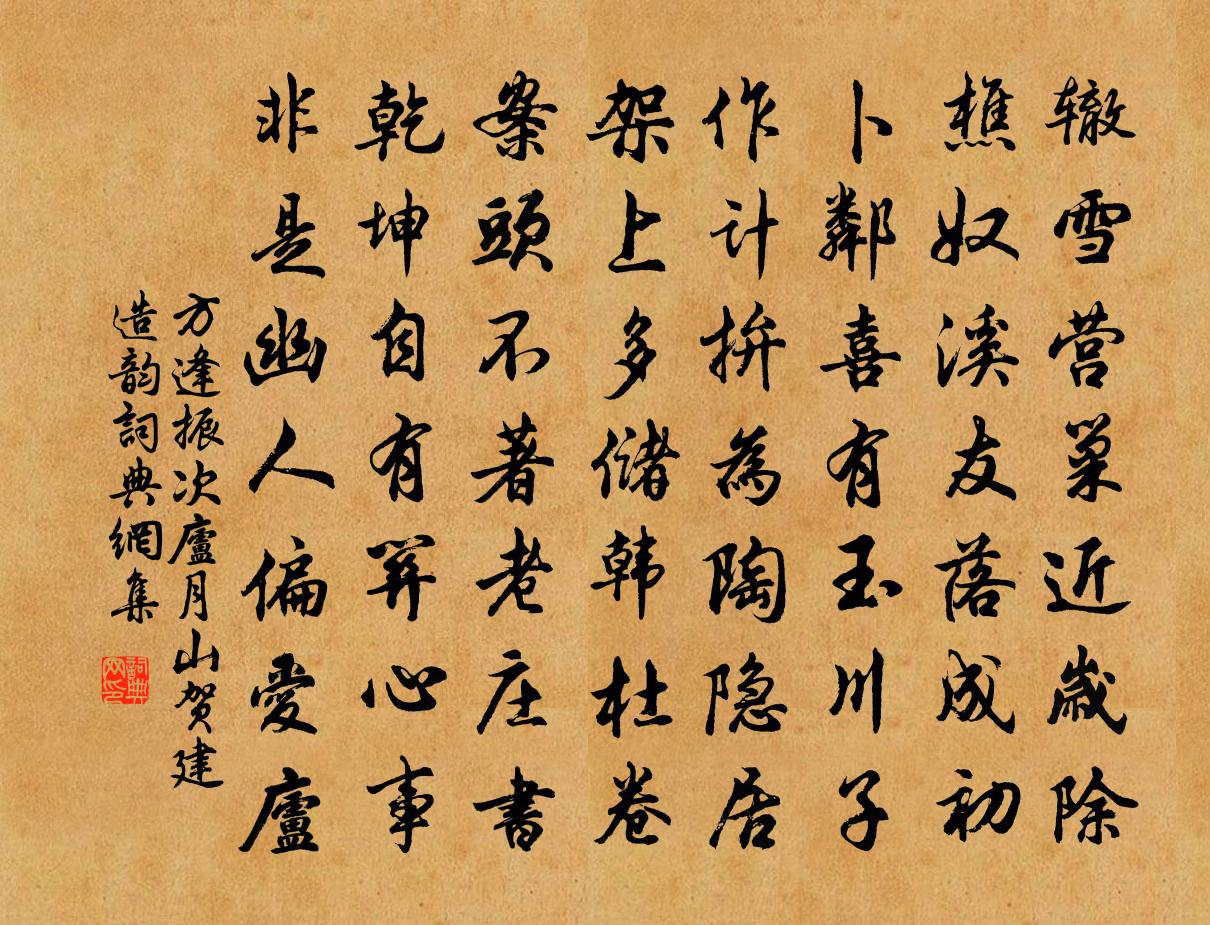 辙雪营巢近歲除
樵奴溪友落成初
卜鄰喜有玉川子
作计拚為陶隐居
架上多儲韩杜卷
案頭不著老庄書
乾坤自有关心事
非是幽人偏愛廬
方逢振次廬月山贺建
造韵詞典網集
詞典网印